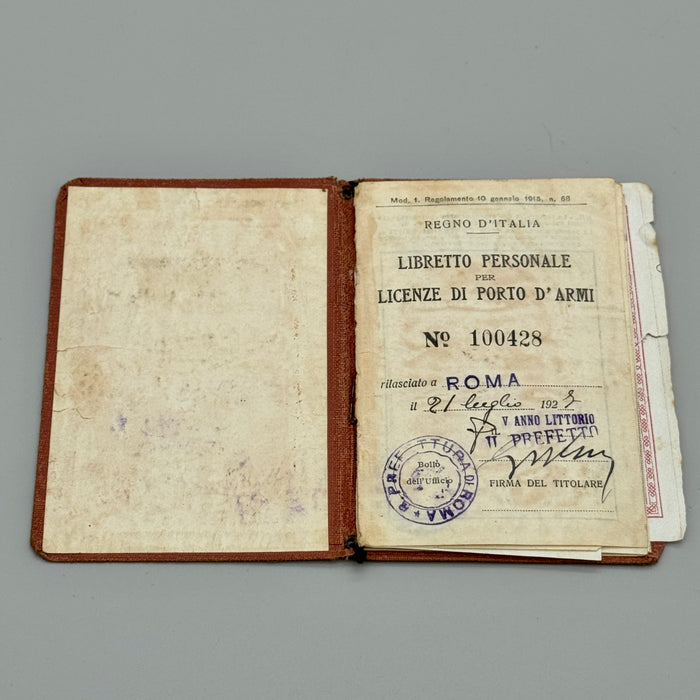 Mod. 1. Regolamento 10 gennaio 1915, n. 68
REGNO D'ITALIA
LIBRETTO PERSONALE
PER
LICENZE DI PORTO D'ARMI
Nº 100428
rilasciato a ROMA
il 21 luglio 192
V ANNO LITTORIO
IL PREFETTO
R. PREFETTURA DI ROMA
Bollo
dell'Ufficio
FIRMA DEL TITOLARE